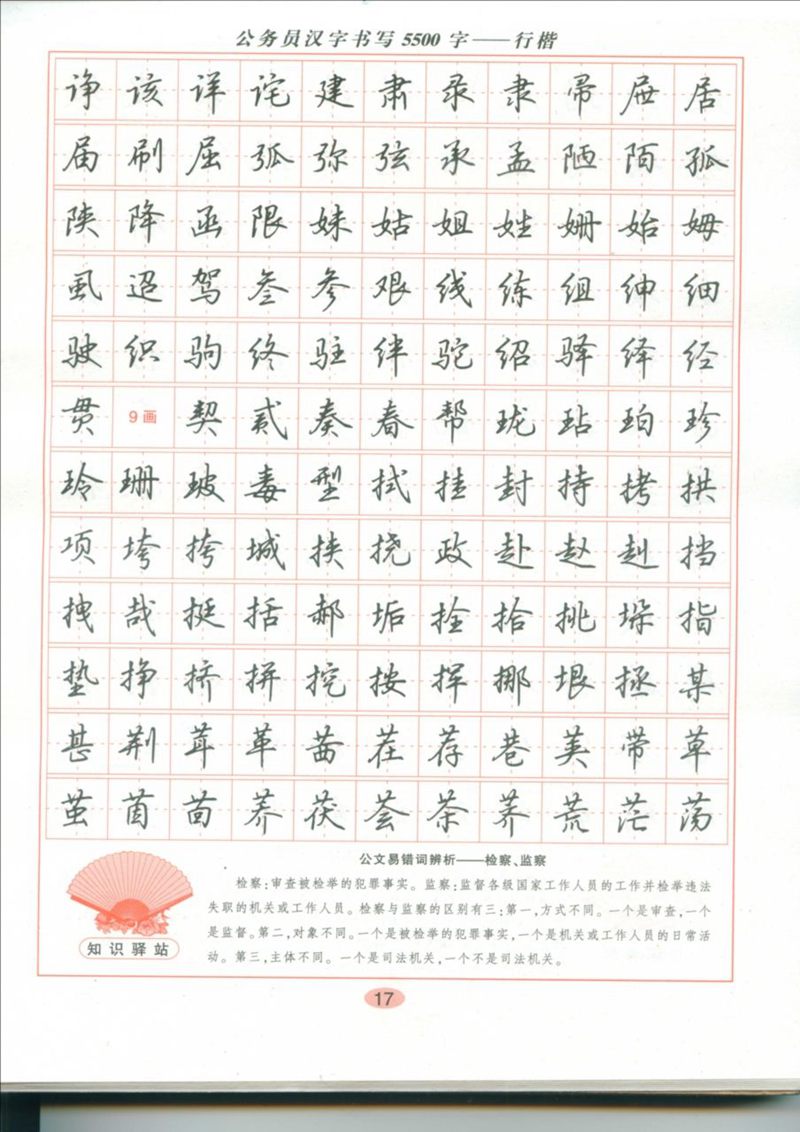 公务员汉字书写5500字——行楷
诤该详诧建肃录隶帚屉居
届刷屈弧弥弦承孟陋陌孤
陕降函限妹姑姐姓姗始姆
虱迢驾叁参艰线练组绅细
驶织驹终驻绊驼绍驿绎经
贯9画契贰奏春帮珑玷珀珍
玲珊玻毒型拭挂封持拷拱
项垮挎城挟挠政赴赵赳挡
拽哉挺括郝垢拴拾挑垛指
垫挣挤拼挖按挥挪垠拯某
甚荆茸革茜茬荐巷荚带草
茧茵茴荞茯荟茶荠荒茫荡
公文易错词辨析——检察、监察
检察:审查被检举的犯罪事实。监察:监督各级国家工作人员的工作并检举违法
失职的机关或工作人员。检察与监察的区别有三:第一,方式不同。一个是审查,一个
是监督。第二,对象不同。一个是被检举的犯罪事实,一个是机关或工作人员的日常活
动。第三,主体不同。一个是司法机关,一个不是司法机关。
知识驿站
17